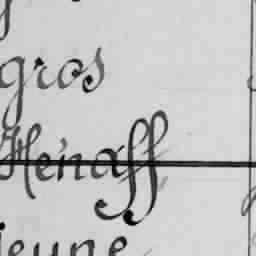 gros
Hénaff
jeune